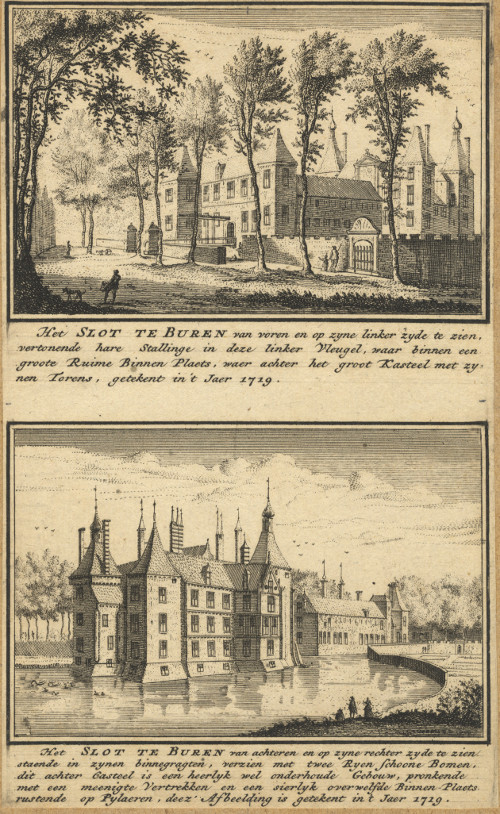 Het SLOT TE BUREN van voren en op zyne linker zyde te zien,
vertonende hare Stallinge in deze linker Vleugel, waar binnen een
groote Ruime Binnen Plaets, waer achter het groot Kasteel met zy-
nen Torens, getekent in't Jaer 1719.
Het SLOT TE BUREN van achteren en op zyne rechter zyde te zien
staende in zynen binnegragten, verzien met twee Ryen schoone Bomen.
dit achter Casteel is een heerlyk wel onderhoude Gebouw, pronkende
met een meenigte Vertrekken en een sierlyk overwelfde Binnen Plaets
rustende op Pylaeren, deez' Afbeelding is getekent in't Jaer 1719.